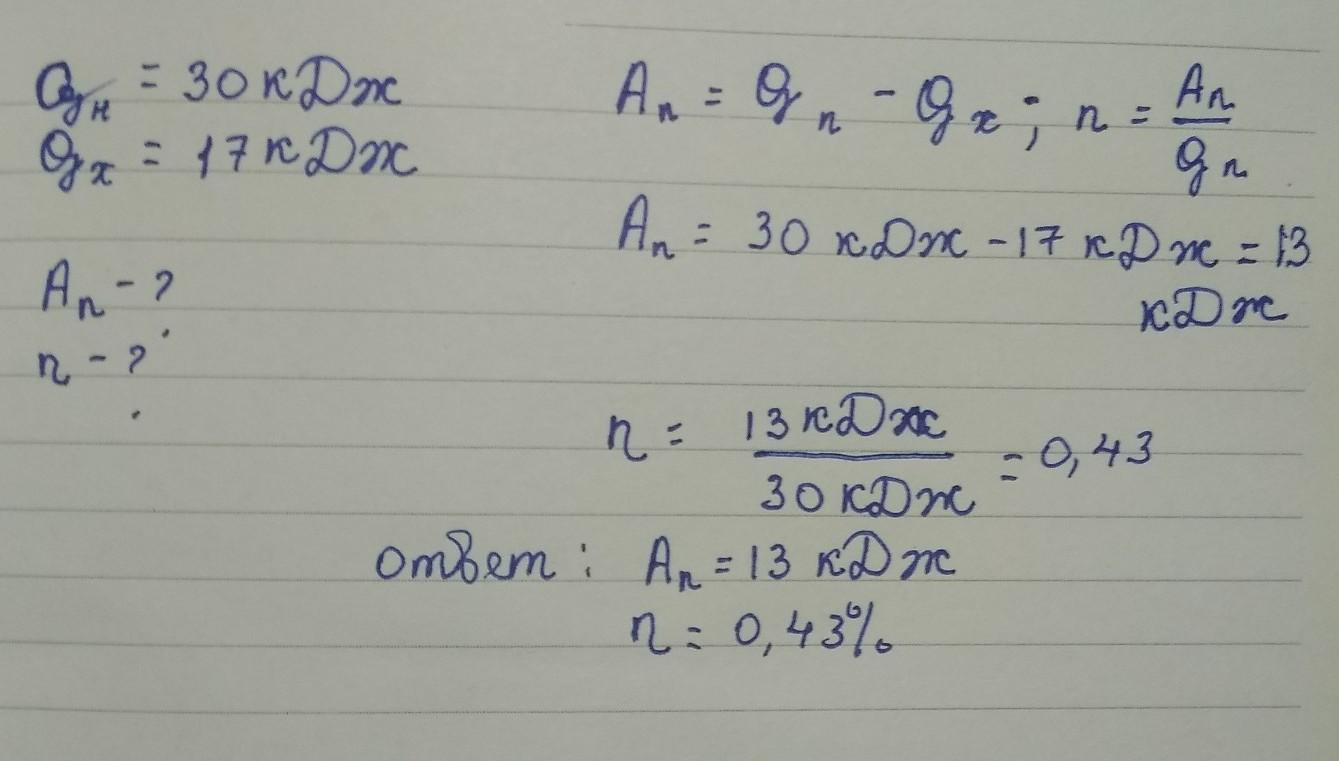 Qн = 30 кДж
Qх = 17 кДж
Aп - ?
η - ?
Aп = Qп - Qх ; η = Aп / Qп
Aп = 30 кДж - 17 кДж = 13
кДж
η = 13 кДж / 30 кДж = 0,43
ответ : Aп = 13 кДж
η = 0,43%